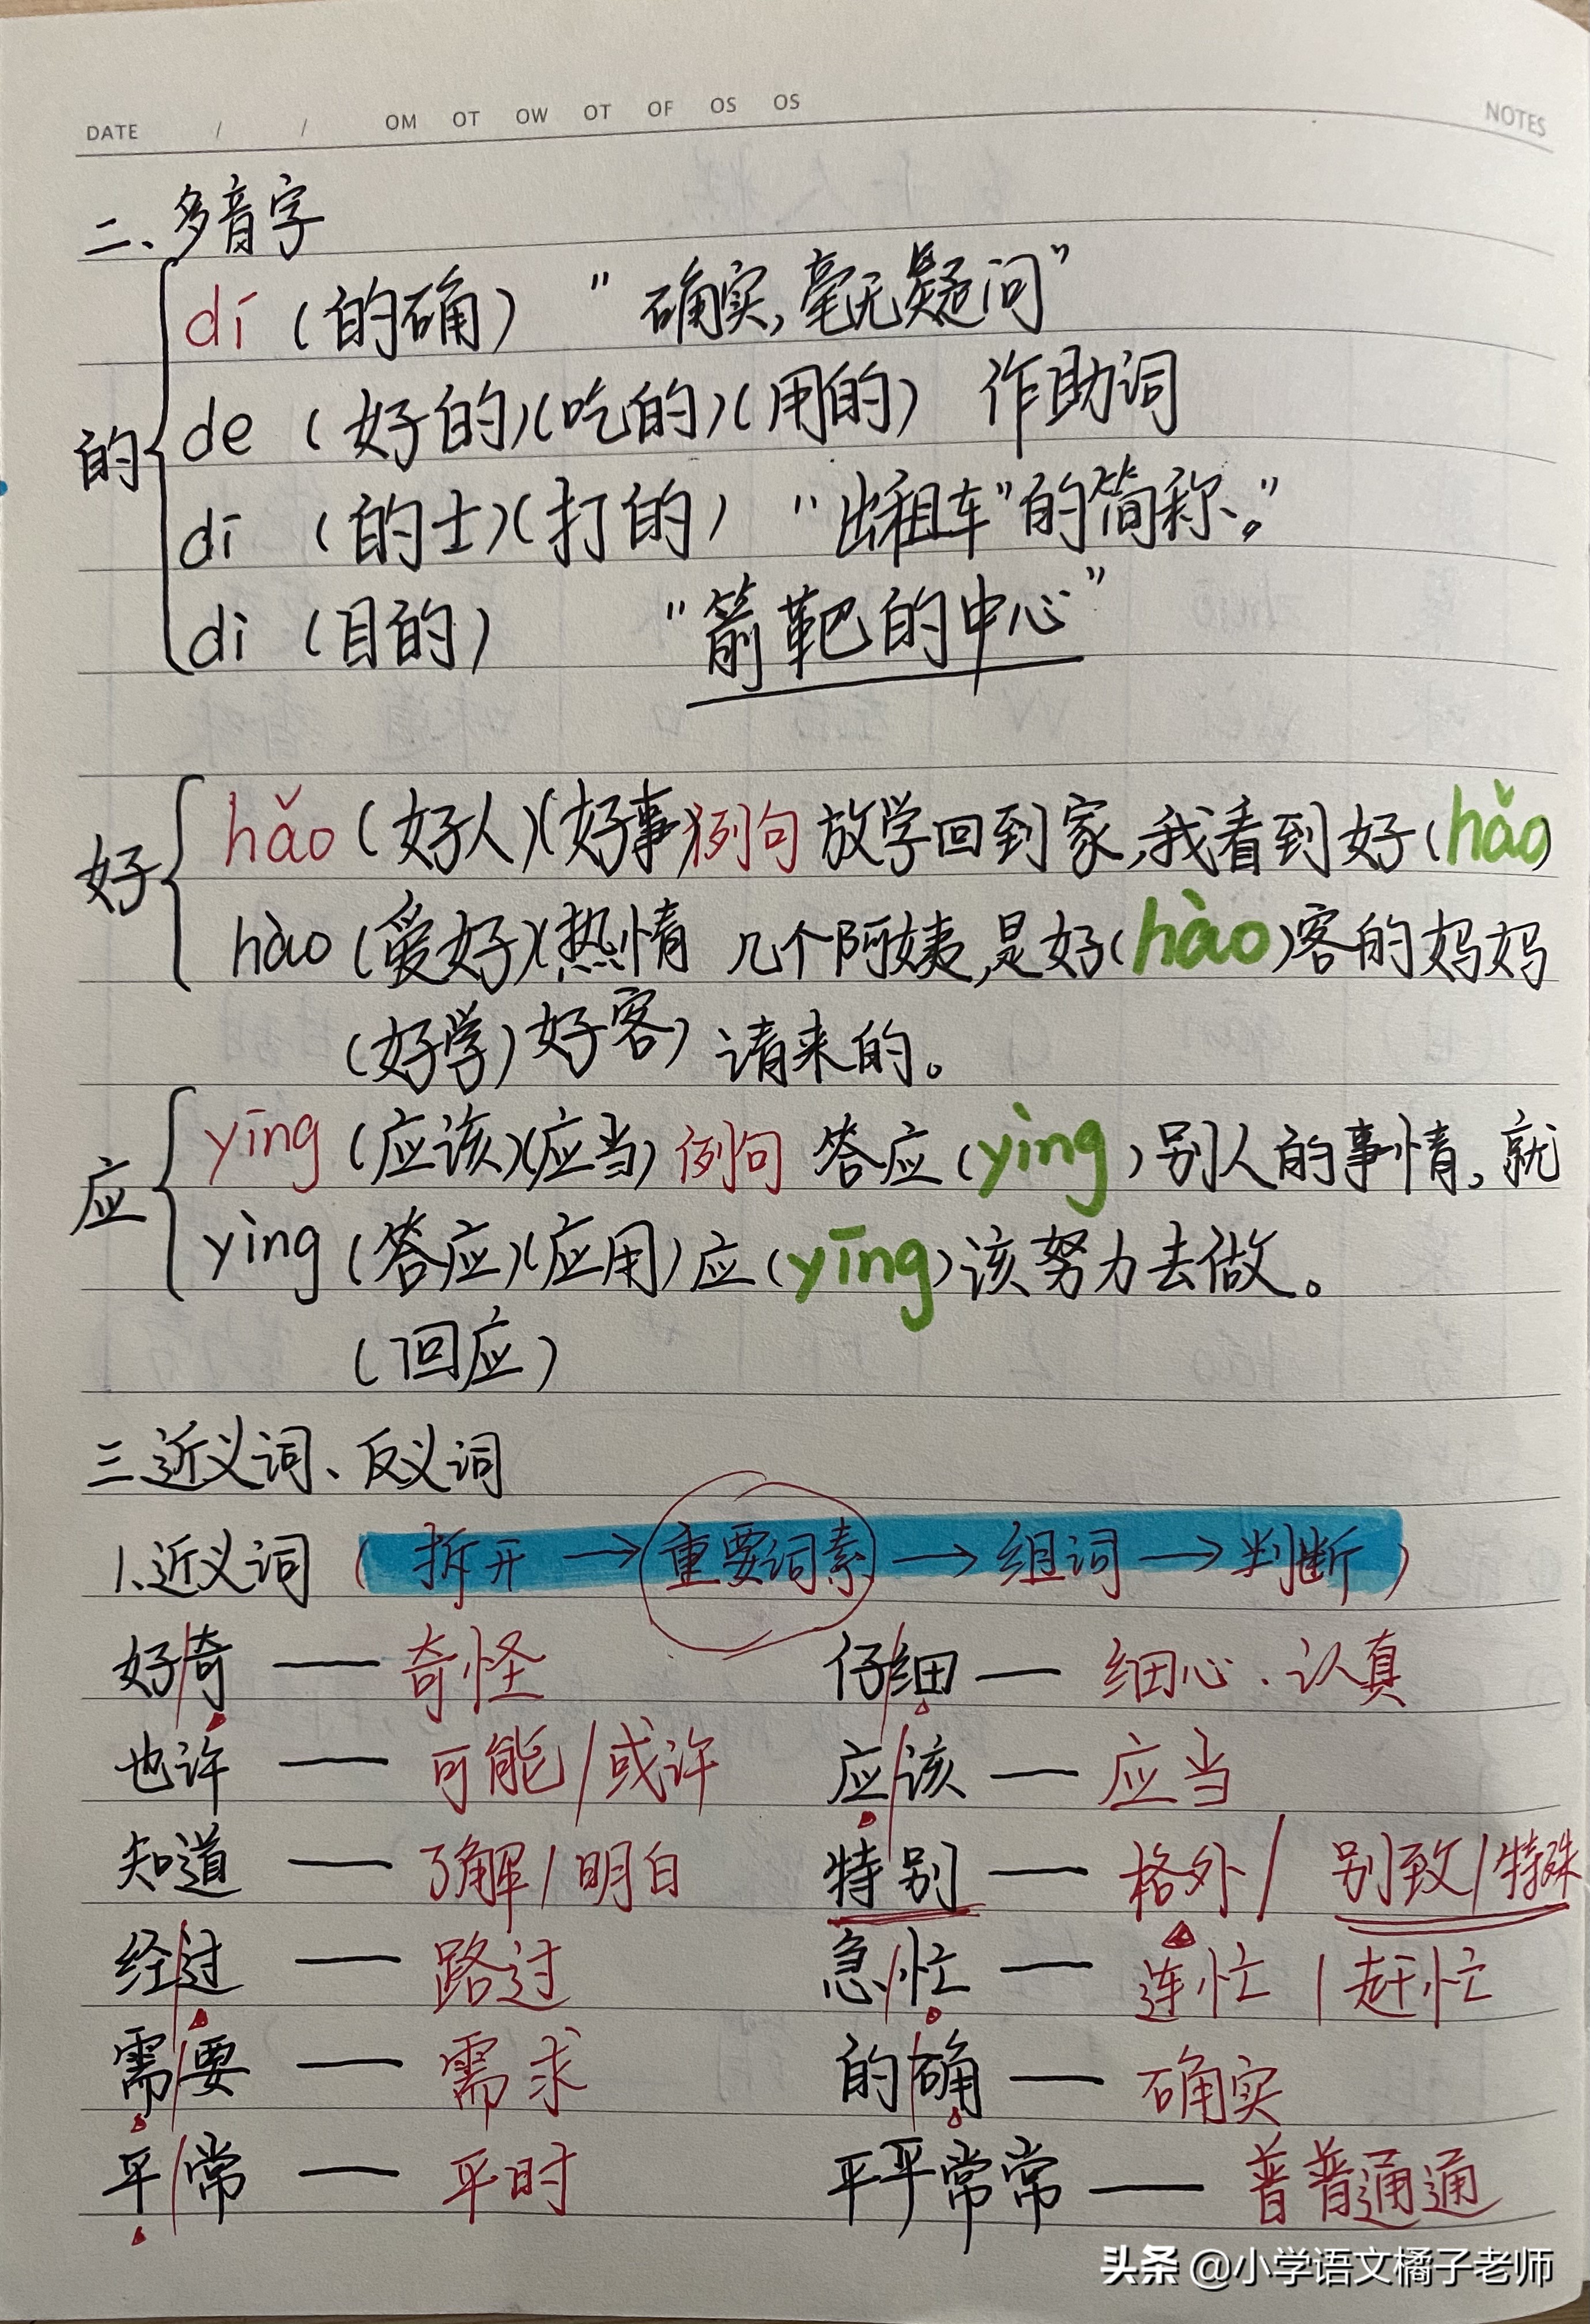 DATE / / OM OT OW OT OF OS OS NOTES
二、多音字
dí (的确) "确实,毫无疑问"
的 de (好的)(吃的)(用的) 作助词
dī (的士)(打的) "出租车"的简称。"
dì (目的) "箭靶的中心"
好 hǎo (好人)(好事)例句 放学回到家,我看到好(hǎo)
hào (爱好)(热情 几个阿姨,是好(hào)客的妈妈
(好学)好客) 请来的。
应 yīng (应该)(应当) 例句 答应(yìng)别人的事情,就
yìng (答应)(应用) 应(yīng)该努力去做。
(回应)
三、近义词、反义词
1、近义词 (拆开→重要词素→组词→判断)
好/奇 — 奇怪 仔/细 — 细心、认真
也许 — 可能/或许 应/该 — 应当
知道 — 了解/明白 特别 — 格外/ 别致/特殊
经/过 — 路过 急/忙 — 连忙/赶忙
需/要 — 需求 的/确 — 确实
平/常 — 平时 平平常常 — 普普通通
头条 @小学语文橘子老师